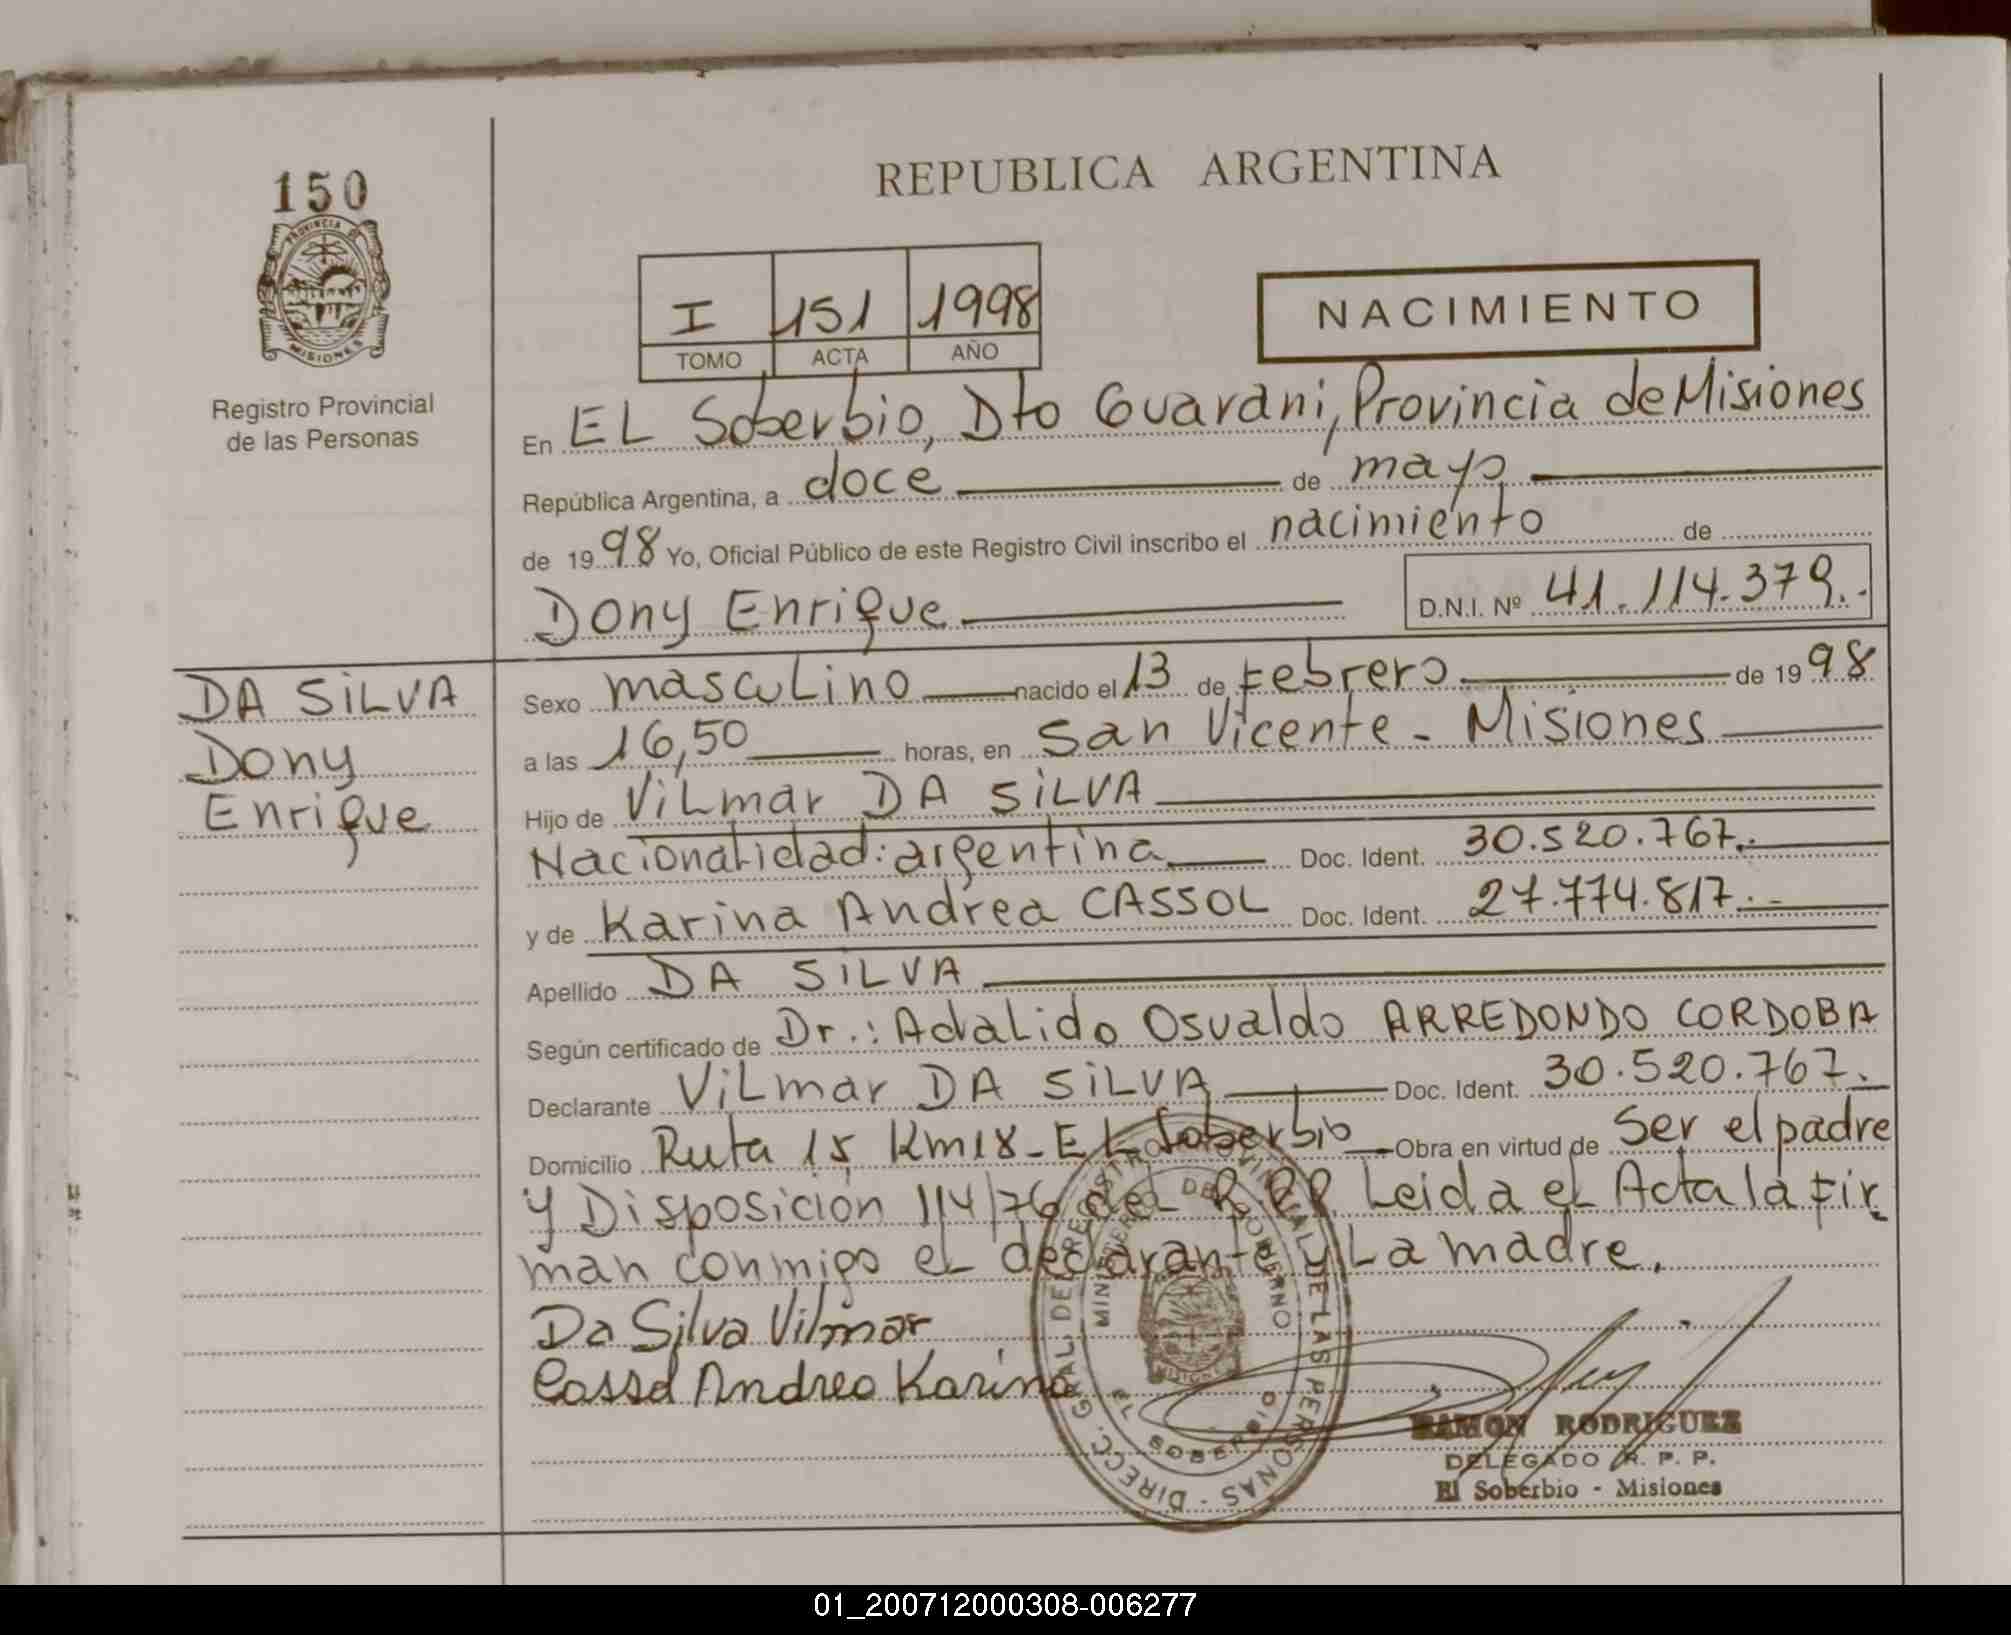 150
PROVINCIA DE
MISIONES
Registro Provincial
de las Personas
REPUBLICA ARGENTINA
I 151 1998
TOMO ACTA AÑO
NACIMIENTO
En EL Soberbio, Dto Guarani, Provincia de Misiones
República Argentina, a doce de mayo
de 1998 Yo, Oficial Público de este Registro Civil inscribo el nacimiento de
Dony Enrique D.N.I. Nº 41.114.379..
DA SiLVA
Dony
Enrique
Sexo mascuLino nacido el 13 de Febrero de 1998
a las 16,50 horas, en San Vicente - Misiones
Hijo de ViLmar DA SiLVA
Nacionalidad: argentina Doc. Ident. 30.520.767.
y de Karina Andrea CASSOL Doc. Ident. 27.774.817.-
Apellido DA SiLVA
Según certificado de Dr.: AdaLido Osvaldo ARREDONDO CORDOBA
Declarante ViLmar DA SiLVA Doc. Ident. 30.520.767.
Domicilio Ruta 15 Km18-EL Soberbio Obra en virtud de Ser el padre
y Disposición 114/76 deL R.P.P. Leida eL Acta la Fir
man conmigo eL declarante y La madre.
Da Silva Vilmar
Cassol Andrea Karina
DIRECC. GRAL DEL REGISTRO PROVINCIAL DE LAS PERSONAS -
MINISTERIO DE GOBIERNO
MISIONES
EL SOBERBIO
RAMON RODRIGUEZ
DELEGADO R. P. P.
El Soberbio - Misiones
01_200712000308-006277